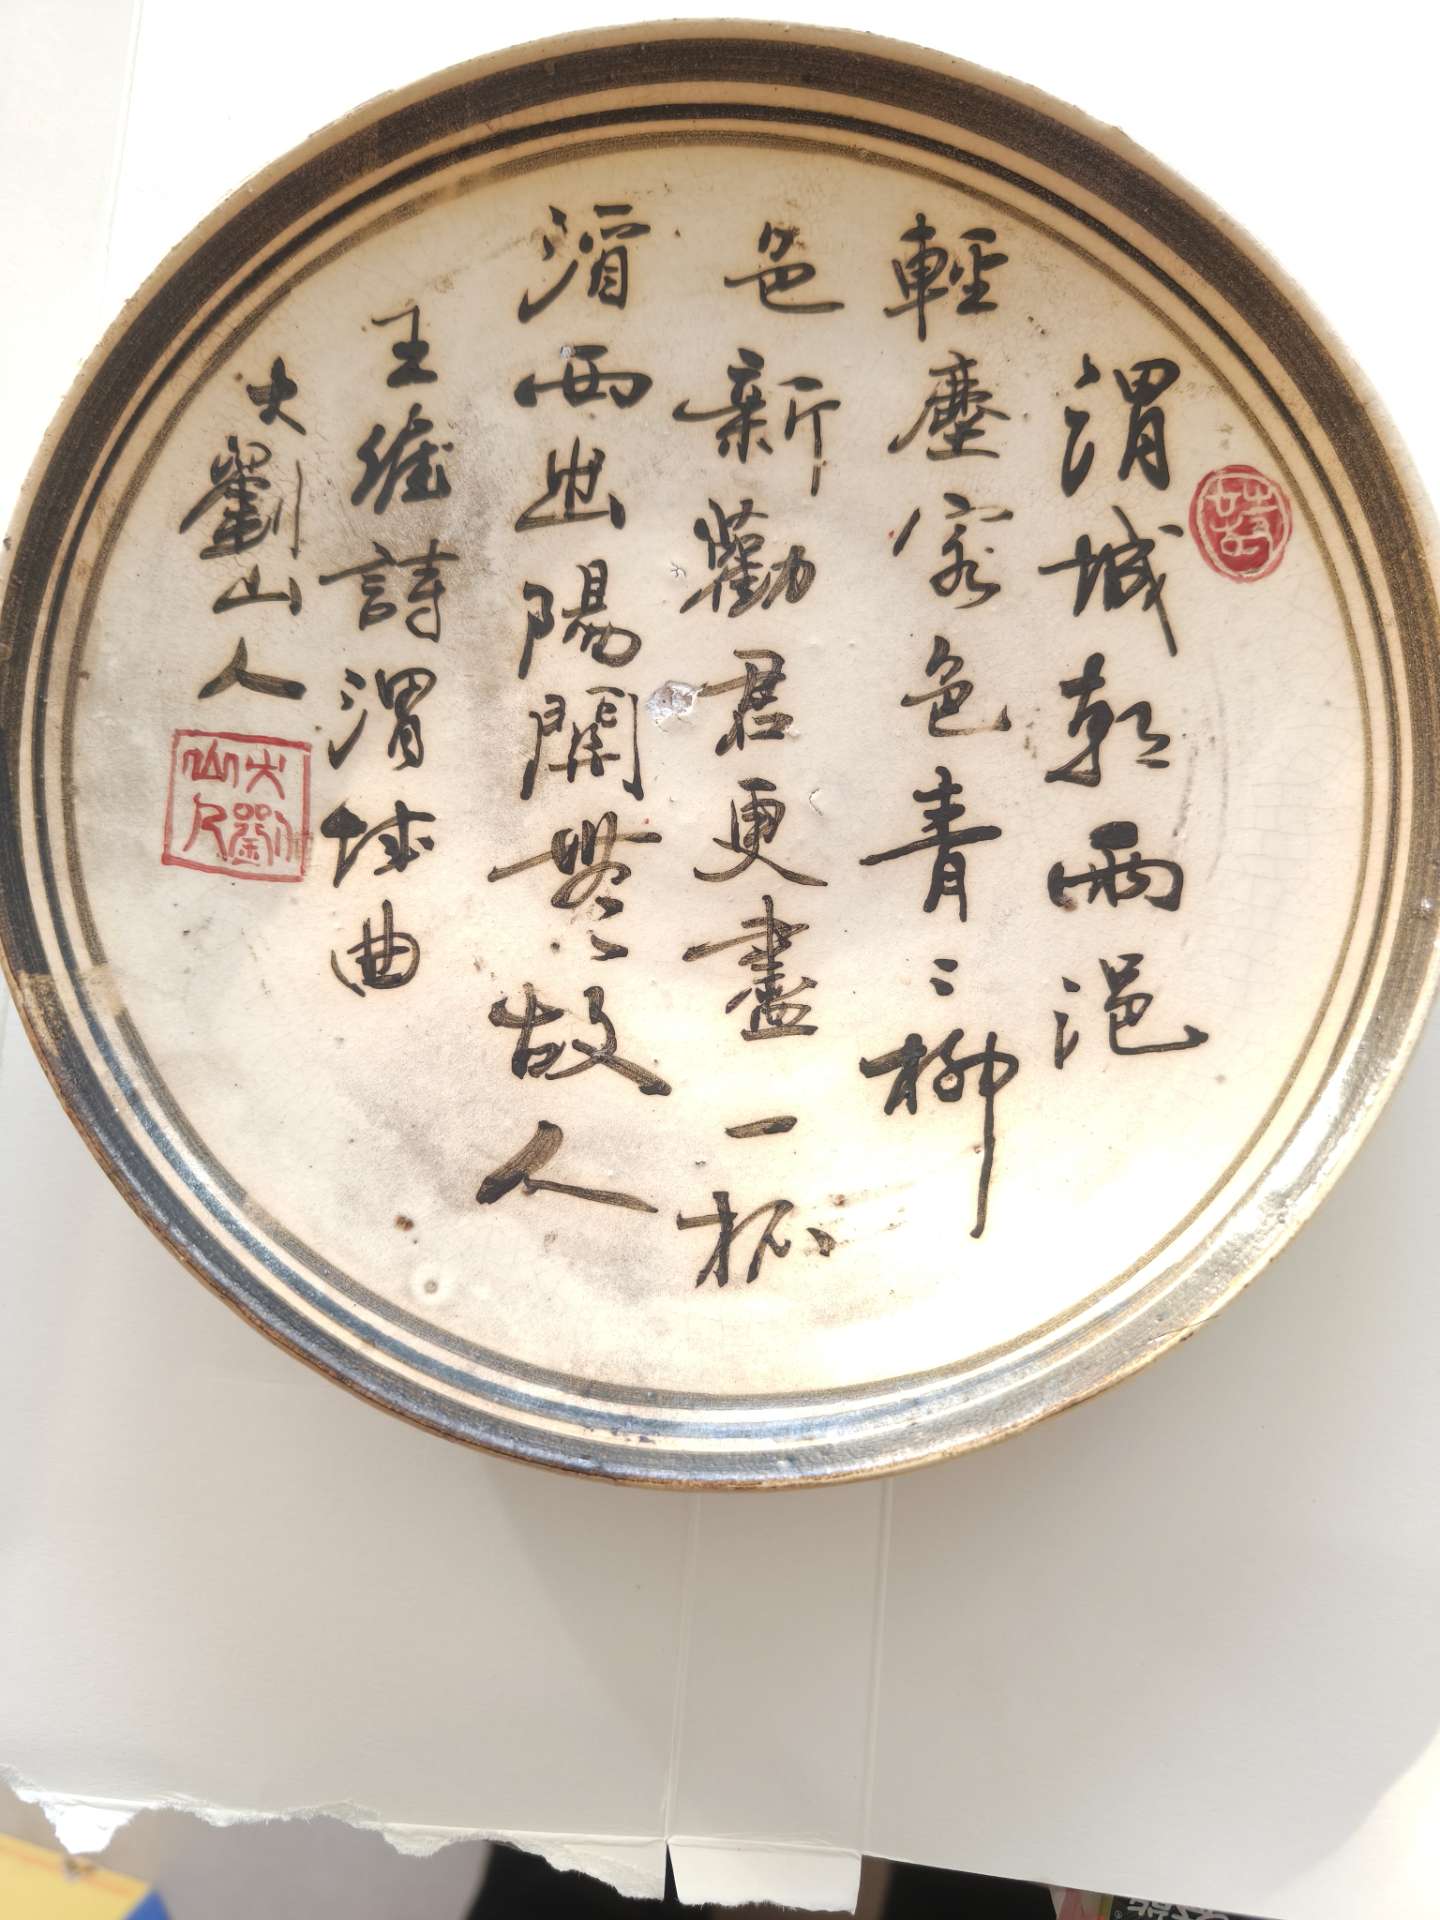 渭城朝雨浥
輕塵客色青々柳
色新勸君更盡一杯
酒西出陽關無故人
王維詩渭城曲
大劉山人
大劉山人